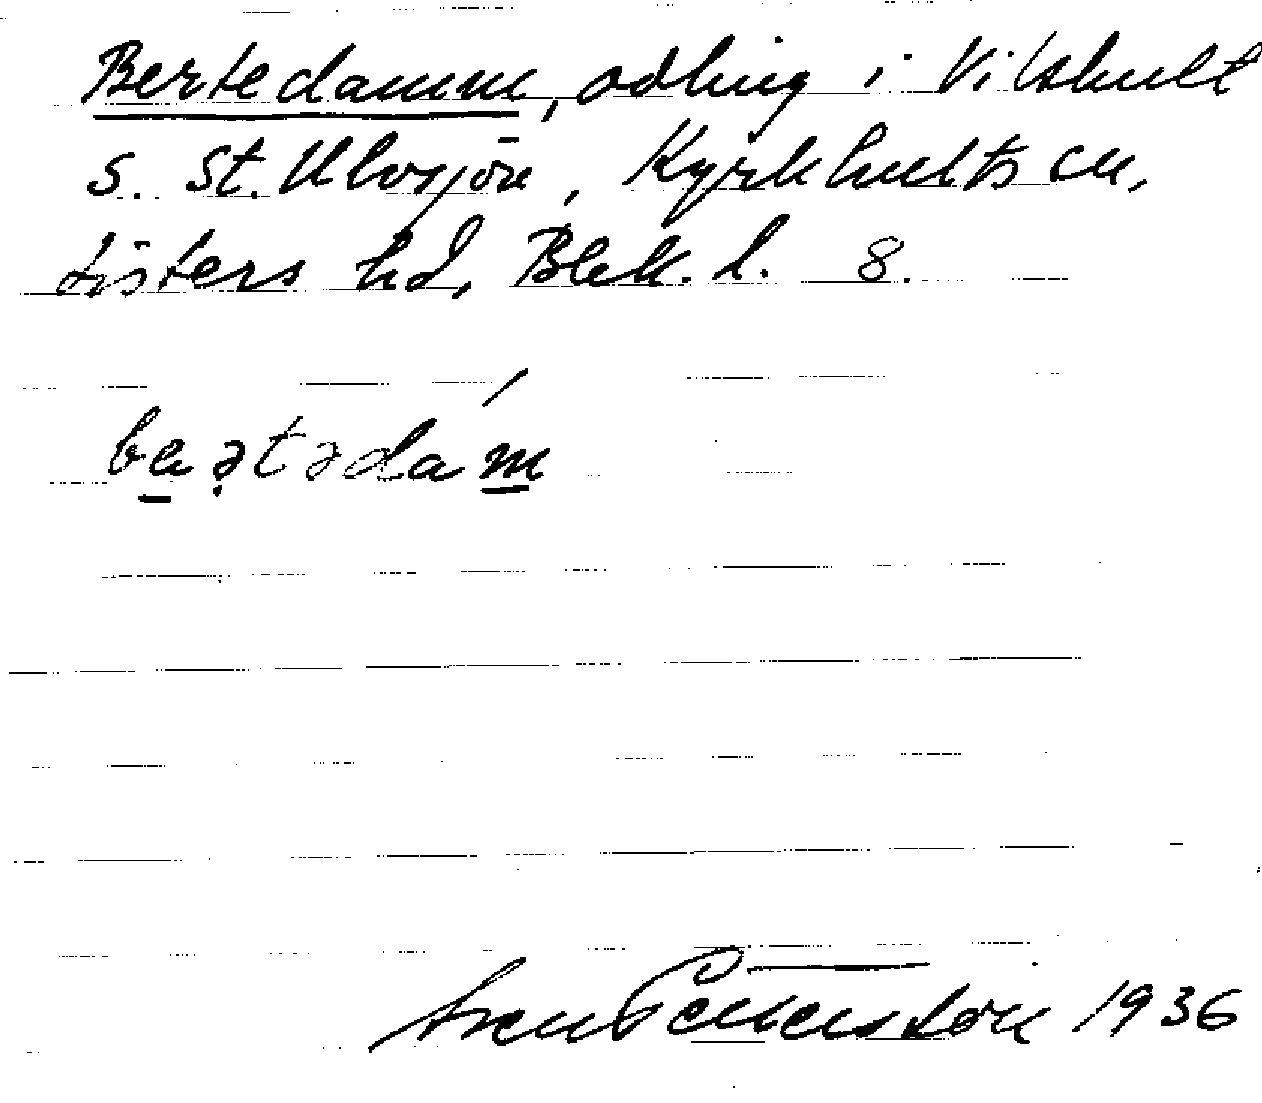 Bertedamm, odling i Vilshult
s. St. Ulvsjön, Kyrkhults sn,
Listers hd, Blek. l. 8.
bea̱ə̣tədám̱
Sven Benson 1936